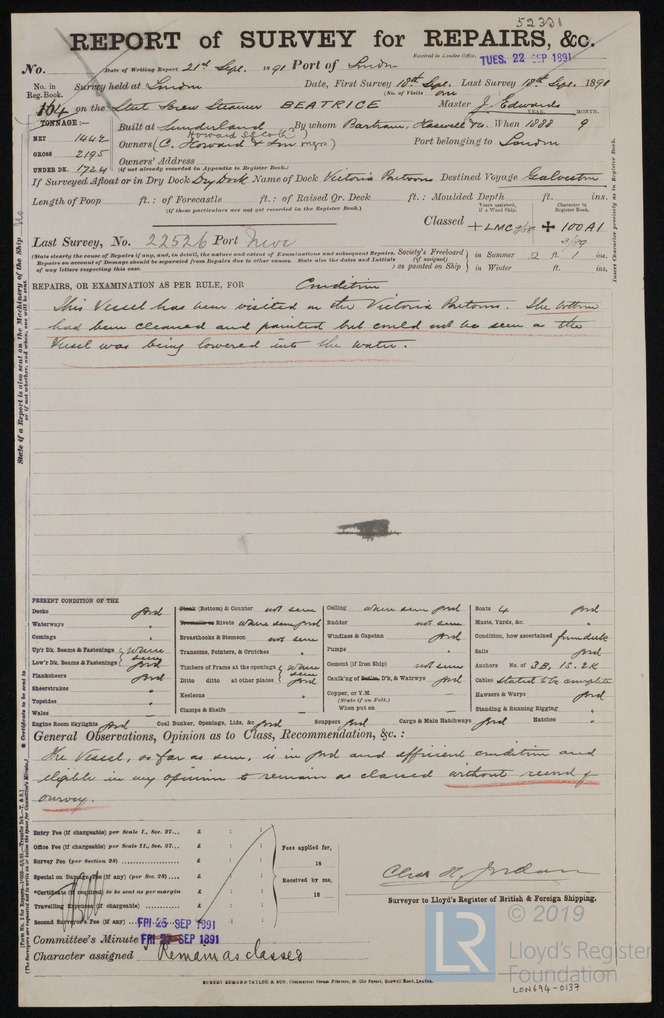 52331
REPORT of SURVEY for REPAIRS, &c.
Received in London Office,
TUES. 22 SEP 1891
No. Date of Writing Report 21st Sept. 1891 Port of London
No. in Reg. Book. Survey held at London Date, First Survey 18th Sept. Last Survey 18th Sept. 1891
(No. of Visits one
164 on the Steel Screw Steamer BEATRICE Master J. Edwards
TONNAGE: YEAR. MONTH.
NET 1442 Built at Sunderland By whom Bartram, Haswell & Co. When 1888 9
GROSS 2195 Owners (C. Howard & Son mgrs) Port belonging to London
UNDER DK. 1724 Owners' Address
(if not already recorded in Appendix to Register Book.)
If Surveyed Afloat or in Dry Dock Dry Dock Name of Dock Victoria Pontoons Destined Voyage Galveston
Length of Poop ft.: of Forecastle ft.: of Raised Qr. Deck ft.: Moulded Depth ft. ins.
(if these particulars are not yet recorded in the Register Book.)
Years assigned, if a Wood Ship. Character in Register Book.
Classed + LMC 9/88 ✠ 100A1
Last Survey, No. 22526 Port
(State clearly the cause of Repairs if any, and, in detail, the nature and extent of Examinations and subsequent Repairs.
Repairs on account of Damage should be separated from Repairs due to other causes. State also the dates and Initials
of any letters respecting this case.
Society's Freeboard (if assigned) as painted on Ship
in Summer 2 ft. 1 ins.
in Winter ft. ins.
REPAIRS, OR EXAMINATION AS PER RULE, FOR Condition
This Vessel has been visited on the Victoria Pontoons. The bottom
had been cleaned and painted but could not be seen as the
Vessel was being lowered into the water.
PRESENT CONDITION OF THE
Decks good
Waterways "
Comings "
Up'r Dk. Beams & Fastenings where
Low'r Dk. Beams & Fastenings seen good
Planksheers good
Sheerstrakes "
Topsides "
Wales –
Plank (Bottom) & Counter not seen
Treenails or Rivets where seen good
Breasthooks & Stemson not seen
Transoms, Pointers, & Crutches "
Timbers of Frame at the openings where
Ditto ditto at other places seen good
Keelsons "
Clamps & Shelfs –
Ceiling where seen good
Rudder not seen
Windlass & Capstan good
Pumps "
Cement (if from Ship) not seen
Caulk'ng of Bottom, D'k, & Watrwys good
Copper, or Y.M. –
(State if on Felt.)
When put on –
Boats 4 good
Masts, Yards, &c. "
Condition, how ascertained from deck
Sails good
Anchors No. of 3B. 1S. 2K
Cables stated to be complete
Hawsers & Warps good
Standing & Running Rigging "
Engine Room Skylights good Coal Bunker, Openings, Lids, &c good Scuppers good Cargo & Main Hatchways good Hatches "
General Observations, Opinion as to Class, Recommendation, &c. :
The Vessel, so far as seen, is in good and efficient condition and
eligible in my opinion to remain as classed without record of
survey.
Entry Fee (if chargeable) per Scale I., Sec. 27... £ : :
Office Fee (if chargeable) per Scale II., Sec. 27... £ : :
Survey Fee (per Section 28) £ : :
Special on Damage Fee (if any) (per Sec. 28)... £ : :
*Certificate (if required) to be sent as per margin
Travelling Expenses (if chargeable) £ : :
Second Surveyor's Fee (if any) £ : :
Fees applied for,
18
Received by me,
18
Chas H. Jordan
Surveyor to Lloyd's Register of British & Foreign Shipping.
FRI 25 SEP 1891
Committee's Minute FRI SEP 1891
Character assigned Remain as classed
ROBERT EDMUND TAYLOR & SON, Commercial Steam Printers, 19, Old Street, Goswell Road, London.
LR
© 2019
Lloyd's Register
Foundation
LON694-0137